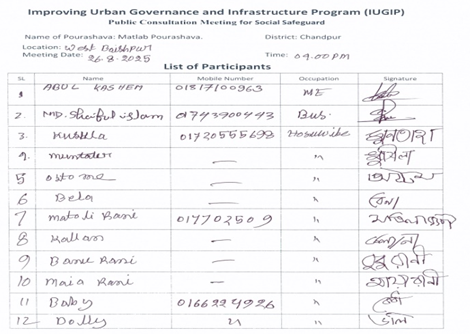 Improving Urban Governance and Infrastructure Program (IUGIP)
Public Consultation Meeting for Social Safeguard
Name of Pourashava: Matlab Pourashava. District: Chandpur
Location: West
Meeting Date: 26.8.2025 Time: 04.00 PM
List of Participants
SL Name Mobile Number Occupation Signature
1 ABUL KASHEM 01817100963 ME
2. MD. Shaiful islam 01743900443 Bus.
3. 01720555698
4. — "
5 — "
6 Bela — "
7 Matoli Rani 017702509 "
8 Kallan — "
9 Banu Rani — "
10 Maia Rani — "
11 Baby 0166224926 "
12 Dolly " "